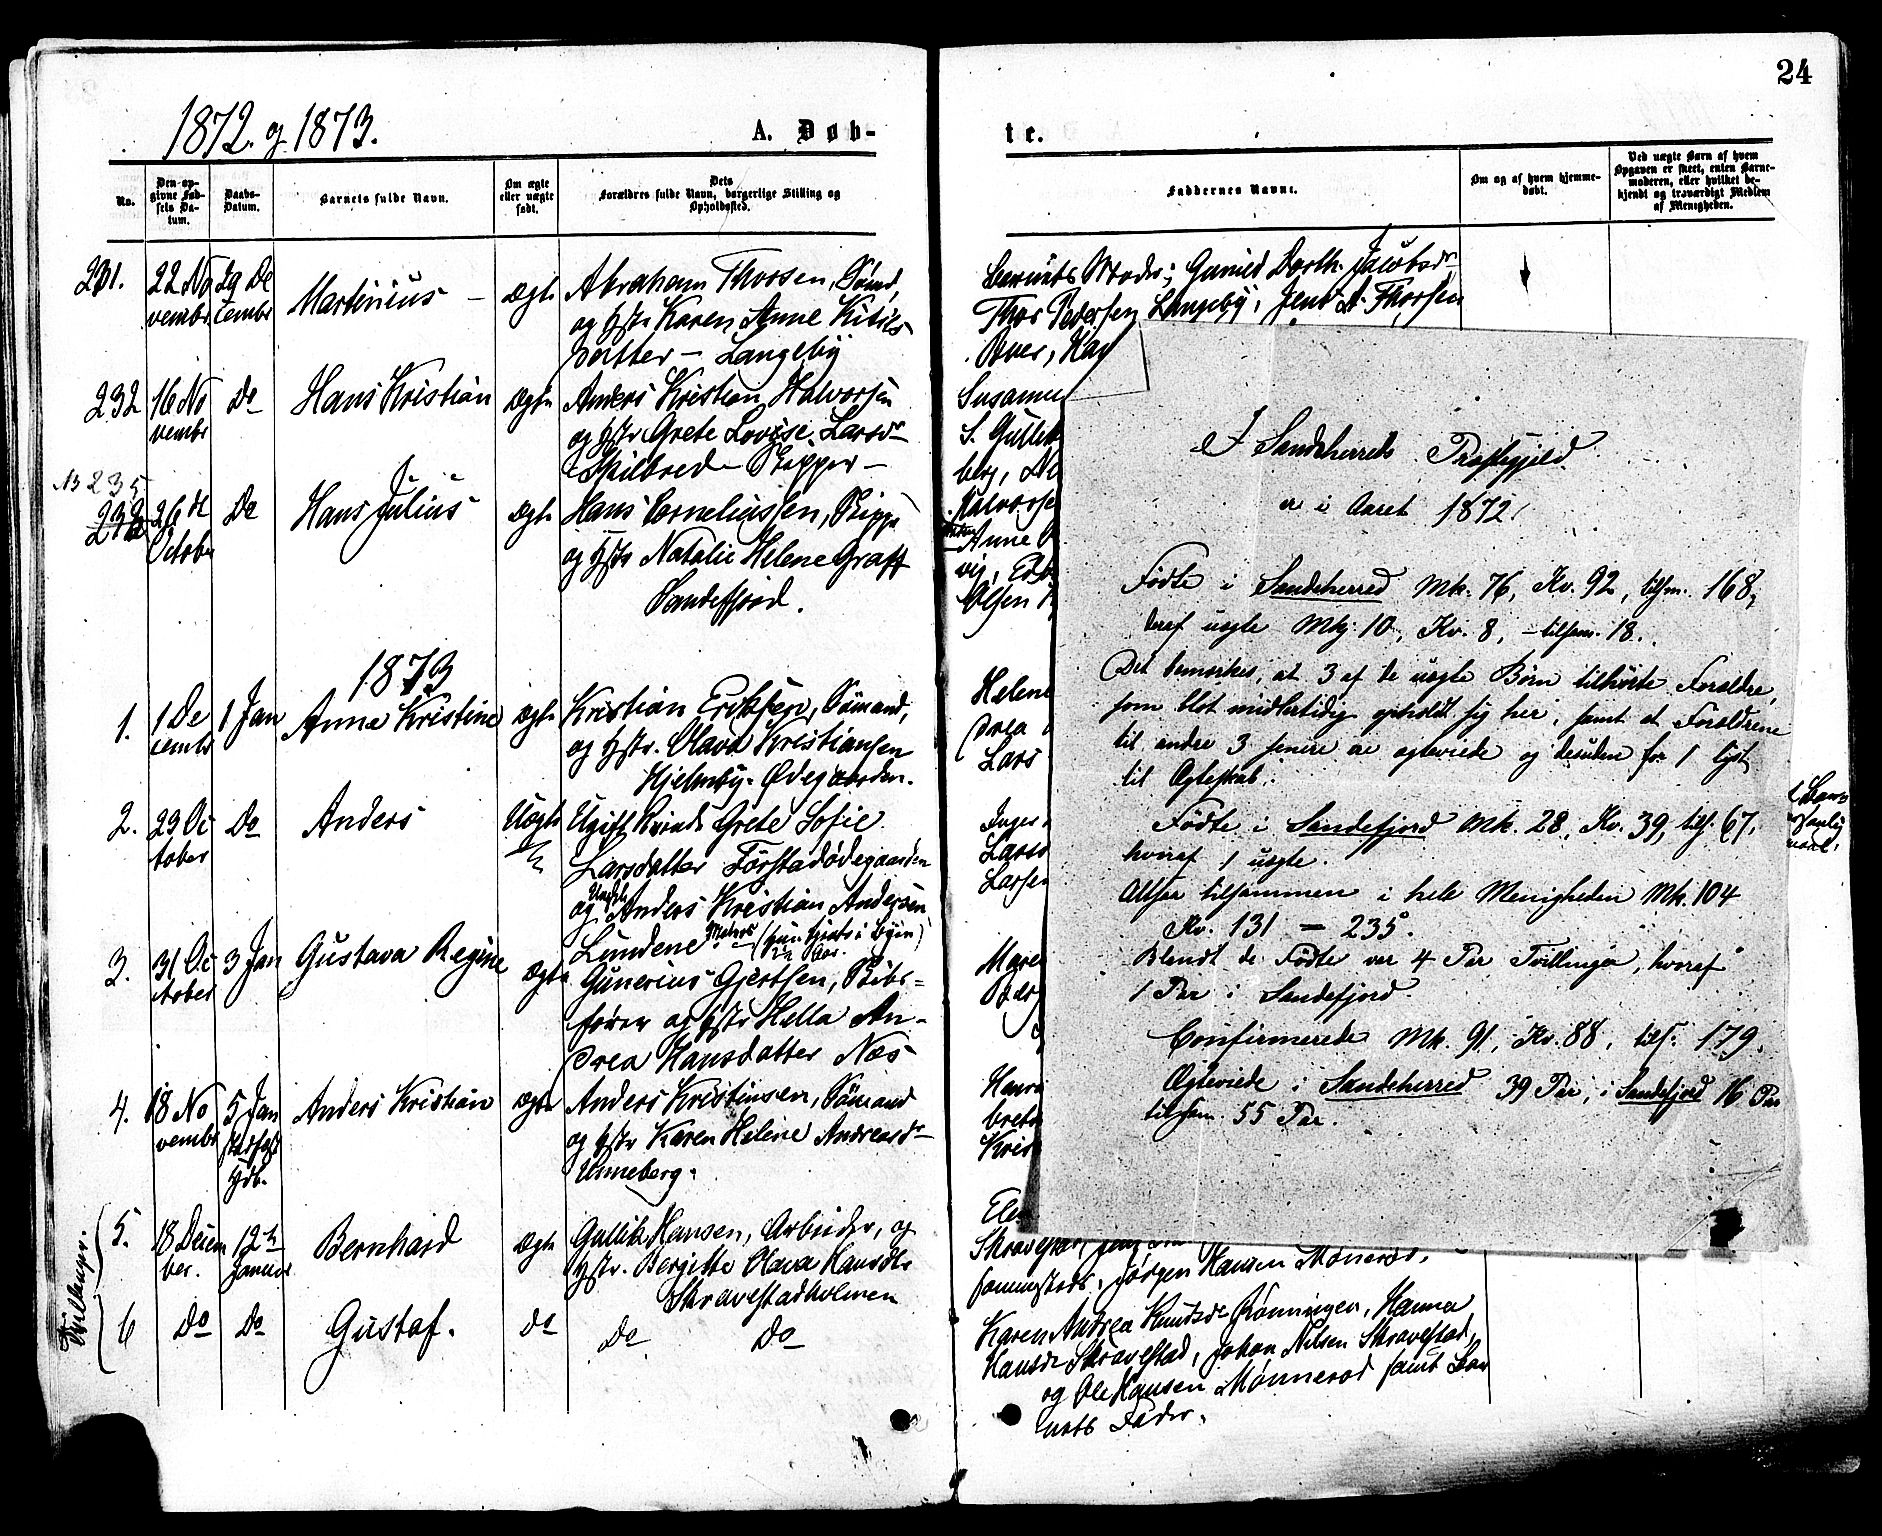 24
1872. og 1873.
A. Døb-
te.
No.
Den opgivne Fødsels Datum.
Daabs-Datum.
Barnets fulde Navn.
Om ægte eller uægte født.
Dets Forældres fulde Navn, borgerlige Stilling og Opholdssted.
Faddernes Navne.
Om og af hvem hjemmedøbt.
Ved uægte Barn af hvem Opgaven er skeet, enten Barnemoderen, eller hvilket bekjendt og troværdigt Medlem af Menigheden.
231. 22 November 29 December Martinius - ægte Abraham Thorsen, Sømd,
og Hstr Karen Anne Kitils-
datter - Langeby
232 16 November Do Hans Kristian ægte Anders Kristian Halvorsen
og Hstr Grete Lovise Larsdr
- Skipper -
No 235
26 de October Do Hans Julius ægte Hans Corneliussen, Skipp
og Hstr Natalie Helene Graff
Sandefjord.
1873
1. 1 December 1 Jan Anna Kristine ægte Kristian Eriksen, Sømand,
og Hstr. Olava Kristiansen
Hjelmby-Ødegaarden.
2. 29 October Do Anders Uægte Ugift Kvinde Grete Sofie
Larsdatter Førstadødegaarden
og Ungkl Anders Kristian Andersen
Lundene
3. 31 October 3 Jan Gustava Regine ægte Gunerius Gjertsen, Skibs-
fører og Hstr Hella An-
drea Hansdatter Næs
4. 18 November 5 Jan Hdb. Anders Kristian ægte Anders Kristinsen, Sømand
og Hstr Karen Helene Andreasdr
Unneberg.
Tvillinger.
5. 18 December. 12te Januar Bernhard ægte Gullik Hansen, Arbeider, og
Hstr. Bergitte Olava Hansdtr
Skravestadholmen
6 Do Do Gustaf. do Do Do
Barnets Moder; Gunild Dorth. Jacobsdr
Thor Pedersen Langeby, Jens A. Thorsen
Susanne
S. Gullik
berg,
Halvorse
Anne
vig,
Olsen
Helene
Lars
Inger
Larsd
Larsen
Maren
Hans
Kris
Skravestad,
Jørgen Hansen Mønnerød.
Karen Andrea Knutsdr Rønningen, Hanna
Hansdr Skravestad, Johan Nilsen Skravestad,
og Ole Hansen Mønnerød samt Bar
nets Fader.
I Sandeherreds Præstegjeld
er i Aaret 1872:
Fødte i Sandeherred Mk. 76, Kv. 92, tilsm. 168,
deraf uægte Mkj. 10, Kv. 8, - tilsam. 18.
Det bemærkes, at 3 af de uægte Børn tilhørte Forældre,
som blot midlertidig opholdt sig her, samt at Forældrene
til andre 3 senere ere ægteviede og desuden for 1 lyst
til Ægteskab.
Fødte i Sandefjord Mk. 28, Kv. 39, tils. 67,
hvoraf 1 uægte.
Altsaa tilsammen i hele Menigheden Mk. 104
Kv. 131 = 235.
Blandt de Fødte var 4 Par Tvillinger, hvoraf
1 Par i Sandefjord.
Confirmerede Mk. 91, Kv. 88, tils. 179.
Ægteviede i Sandeherred 39 Par, i Sandefjord 16 Par
tilsam. 55 Par.